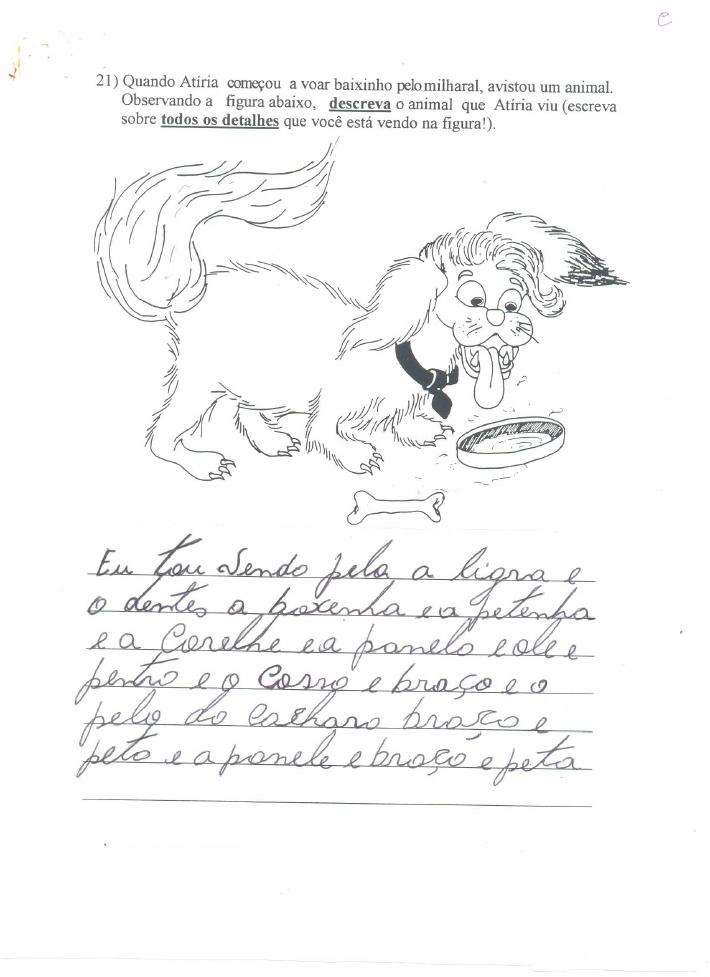 e
21) Quando Atíria começou a voar baixinho pelo milharal, avistou um animal.
Observando a figura abaixo, descreva o animal que Atíria viu (escreva
sobre todos os detalhes que você está vendo na figura!).
Eu tou vendo pelo a ligra e
o dentes a boxenha e a petenha
e a Corelhe e a panelo e ole e
pentro e o Cosso e braço e o
pelo do Cacharo braço e
peto e a panele e braço e peta